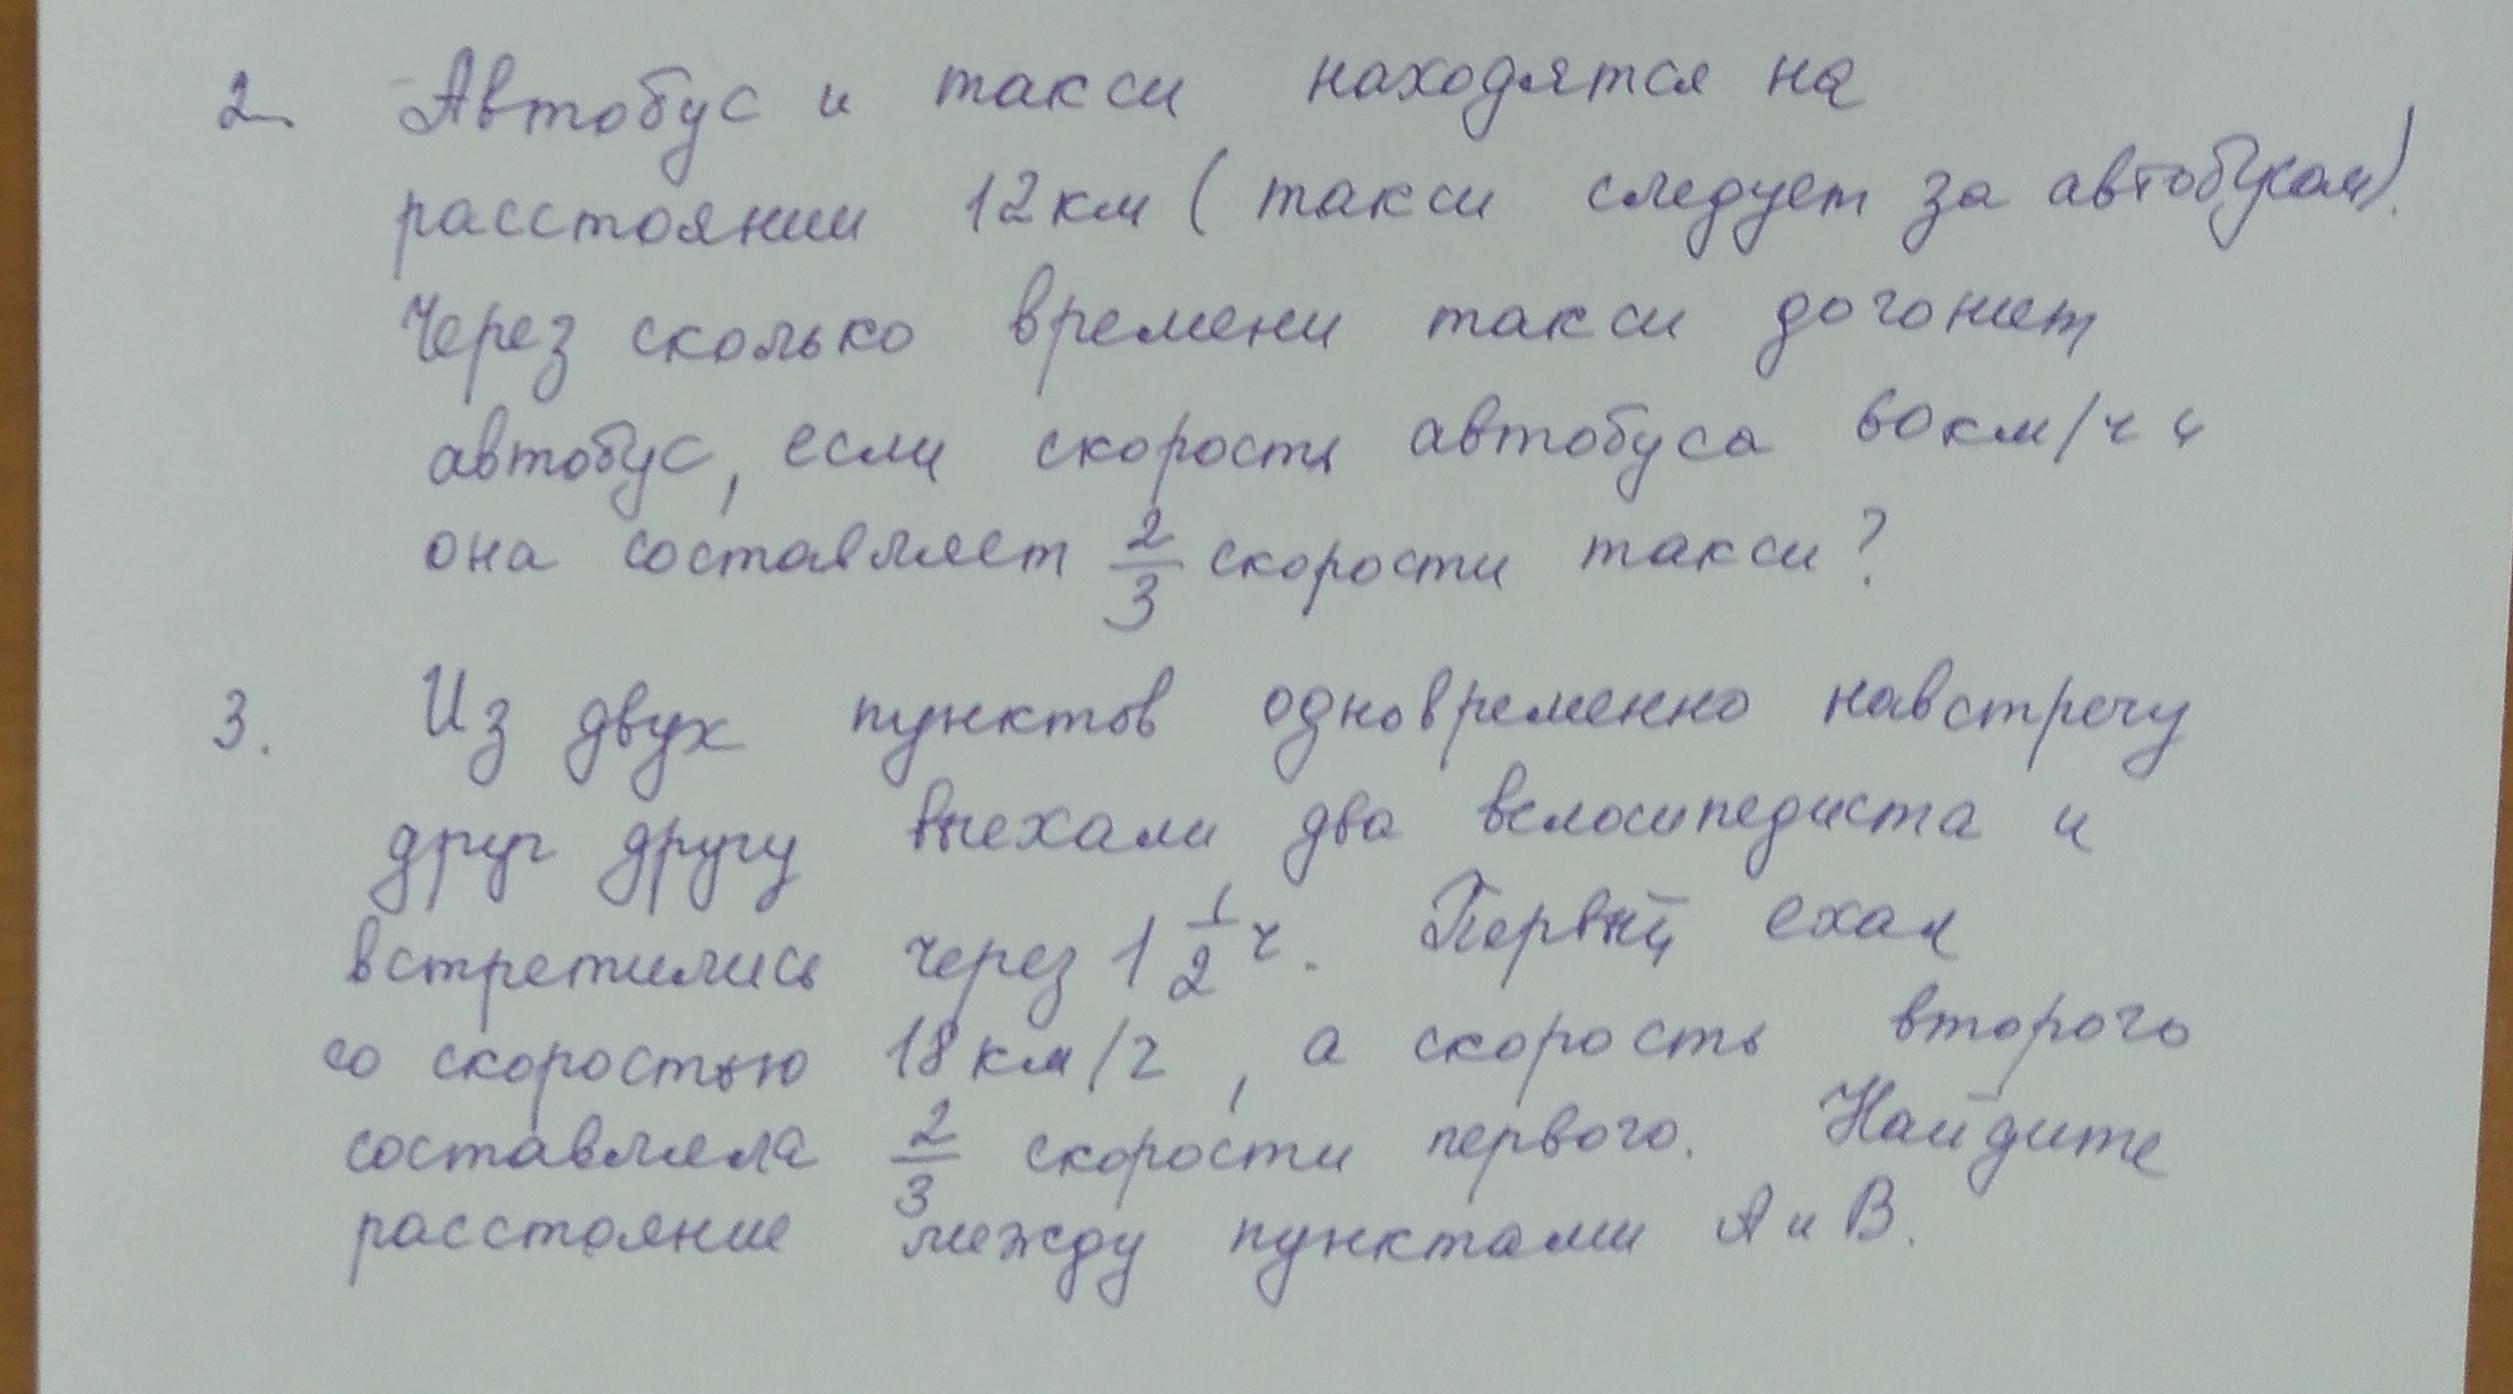 2. Автобус и такси находятся на
расстоянии 12 км (такси следует за автобусом).
Через сколько времени такси догонит
автобус, если скорость автобуса 60 км/ч и
она составляет 2/3 скорости такси?
3. Из двух пунктов одновременно навстречу
друг другу выехали два велосипедиста и
встретились через 1 1/2 ч. Первый ехал
со скоростью 18 км/ч, а скорость второго
составляла 2/3 скорости первого. Найдите
расстояние между пунктами А и В.